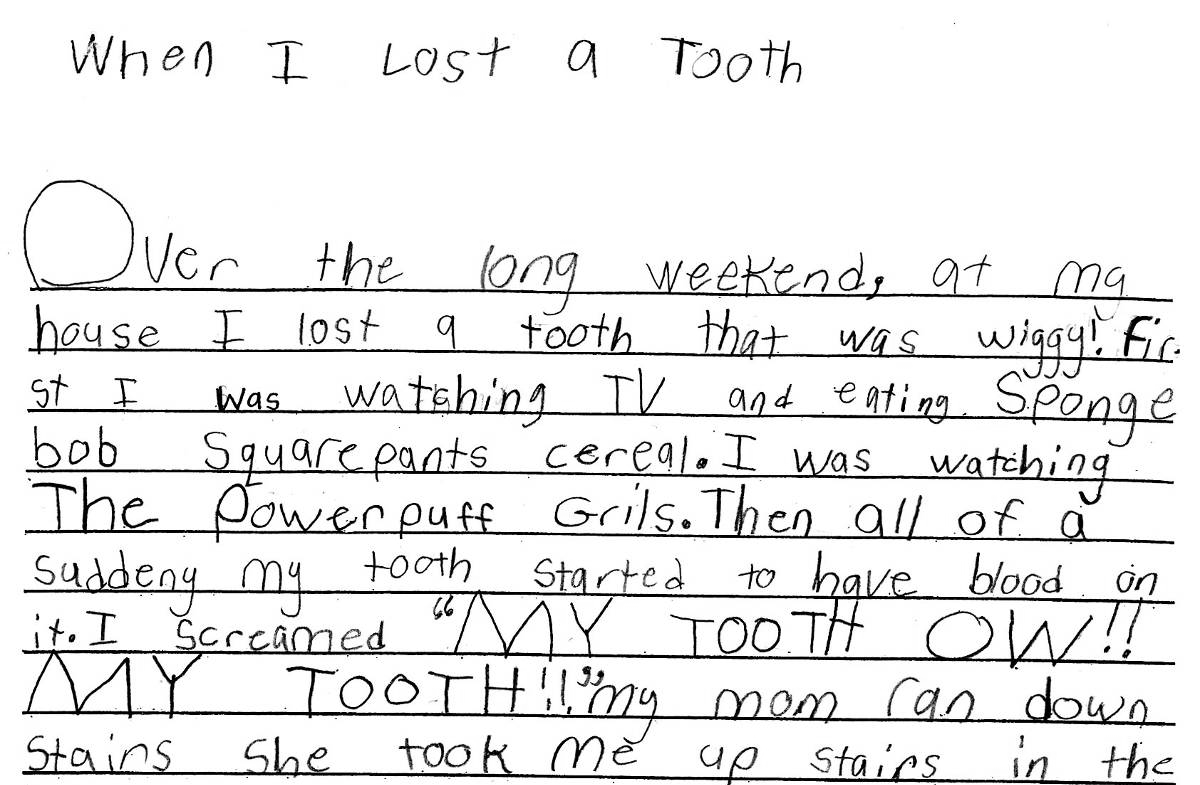 When I Lost a Tooth
Over the long weekend, at my
house I lost a tooth that was wiggy! Fir
st I was watching TV and eating Sponge
bob Squarepants cereal. I was watching
The Powerpuff Grils. Then all of a
suddeny my tooth started to have blood on
it. I screamed “MY TOOTH OW!!
MY TOOTH!!” my mom ran down
stairs she took me up stairs in the